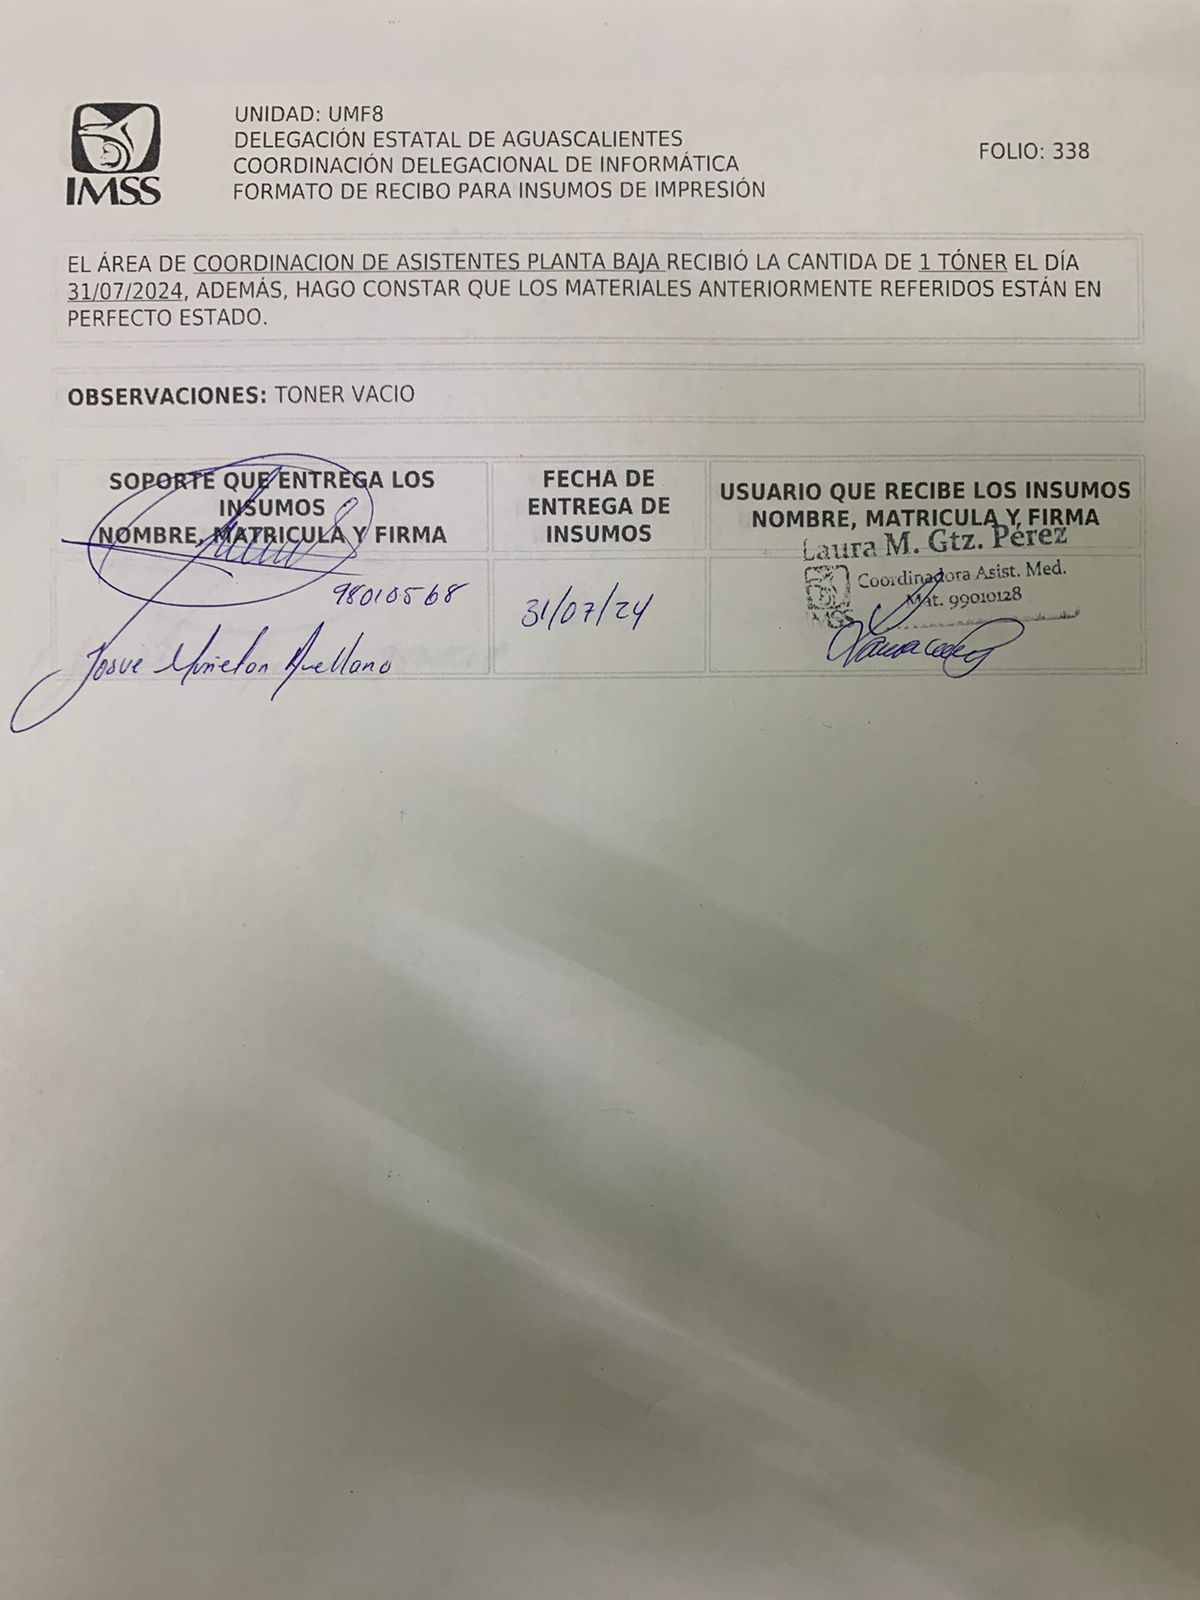 IMSS
UNIDAD: UMF8
DELEGACIÓN ESTATAL DE AGUASCALIENTES
COORDINACIÓN DELEGACIONAL DE INFORMÁTICA
FORMATO DE RECIBO PARA INSUMOS DE IMPRESIÓN
FOLIO: 338
EL ÁREA DE COORDINACION DE ASISTENTES PLANTA BAJA RECIBIÓ LA CANTIDA DE 1 TÓNER EL DÍA
31/07/2024, ADEMÁS, HAGO CONSTAR QUE LOS MATERIALES ANTERIORMENTE REFERIDOS ESTÁN EN
PERFECTO ESTADO.
OBSERVACIONES: TONER VACIO
SOPORTE QUE ENTREGA LOS
INSUMOS
NOMBRE, MATRICULA Y FIRMA
FECHA DE
ENTREGA DE
INSUMOS
USUARIO QUE RECIBE LOS INSUMOS
NOMBRE, MATRICULA Y FIRMA
98010568
Josue Muñeton Arellano
31/07/24
Laura M. Gtz. Pérez
Coordinadora Asist. Med.
Mat. 99010128
IMSS